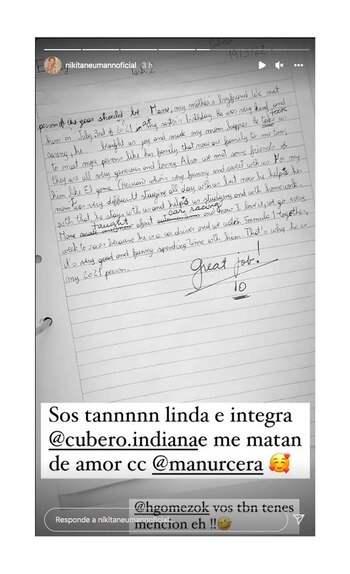 nikitaneumannoficial 3 h
19/3/22
Task 2
person of the year should be Manu, my mother's boyfriend. We met
him in July 3rd of 2021 at my sister's birthday. He was very kind and
caring, he brought us joy and made my mom happier. He took us
to meet more persons like his family that now are family to me too,
they are all very generous and loving. Also we met some friends of
him like El Gomu (Hernan) who's very funny and sweet with us. For my
mom was very difficult staying all day with us but now he helps her
with that he plays with us and helps us studying and with homework.
Manu taught me about car racing and now I love it, we go every
week to races because he is a car driver and we watch Formula 1 together,
it's very good and funny spending time with him. That's why he is
my 2021 person.
Great job!
10
Sos tannnnn linda e integra
@cubero.indianae me matan
de amor cc @manurcera 🥰
@hgomezok vos tbn tenes
mencion eh !!🤣
Responde a nikitaneumannoficial...